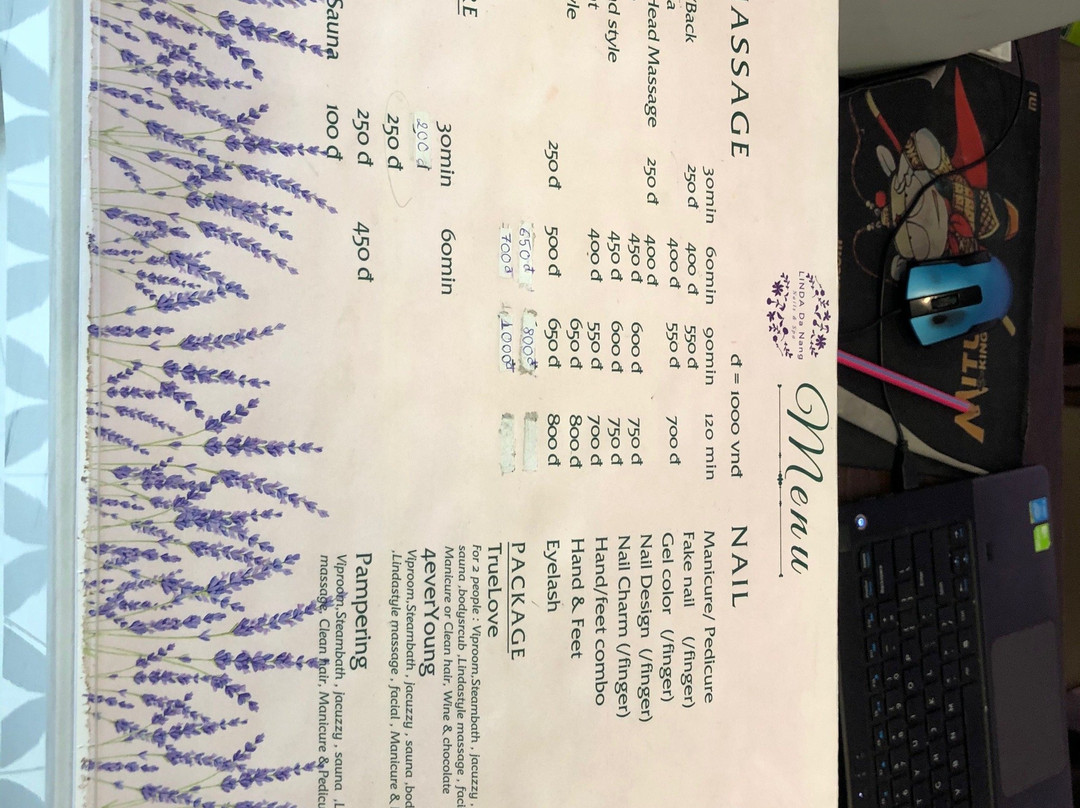 Menu
LINDA Da Nang
Nails & Spa
ASSAGE
đ = 1000 vnđ
30min 60min 90min 120 min
/Back 250 đ 400 đ 550 đ
a 400 đ 550 đ 700 đ
Head Massage 250 đ 400 đ
450 đ 600 đ 750 đ
d style 450 đ 600 đ 750 đ
t 400 đ 550 đ 700 đ
yle 650 đ 800 đ
250 đ 500 đ 650 đ 800 đ
650 đ 800 đ
700 đ 1000 đ
RE
30min 60min
200 đ
250 đ
250 đ 450 đ
Sauna 100 đ
NAIL
Manicure/ Pedicure
Fake nail (/finger)
Gel color (/finger)
Nail Design (/finger)
Nail Charm (/finger)
Hand/feet combo
Hand & Feet
Eyelash
PACKAGE
TrueLove
For 2 people : Viproom,Steambath , jacuzzy ,
sauna ,bodysrcub ,Lindastyle massage , faci
Manicure or Clean hair, Wine & chocolate
4everYoung
Viproom,Steambath , jacuzzy , sauna ,bod
,Lindastyle massage , facial , Manicure &
Pampering
Viproom,Steambath , jacuzzy , sauna ,L
massage, Clean hair, Manicure &Pedicu
mi
MITU
KING